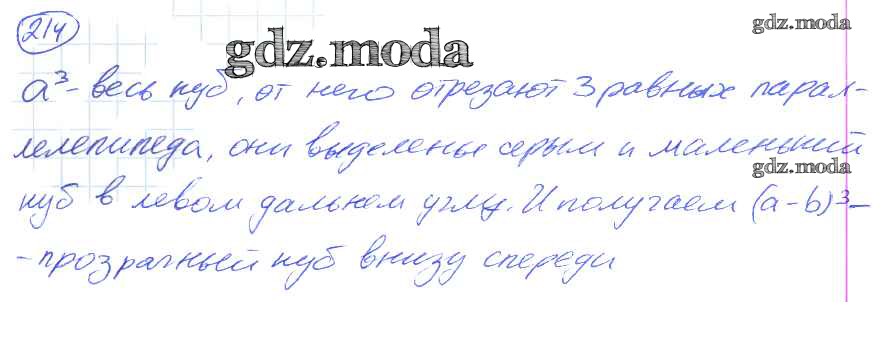 214
gdz.moda
gdz.moda
a³ - весь куб, от него отрезают 3 равных парал-
лелепипеда, они выделены серым и маленький
gdz.moda
куб в левом дальнем углу. И получаем (a-b)³ -
- прозрачный куб внизу спереди